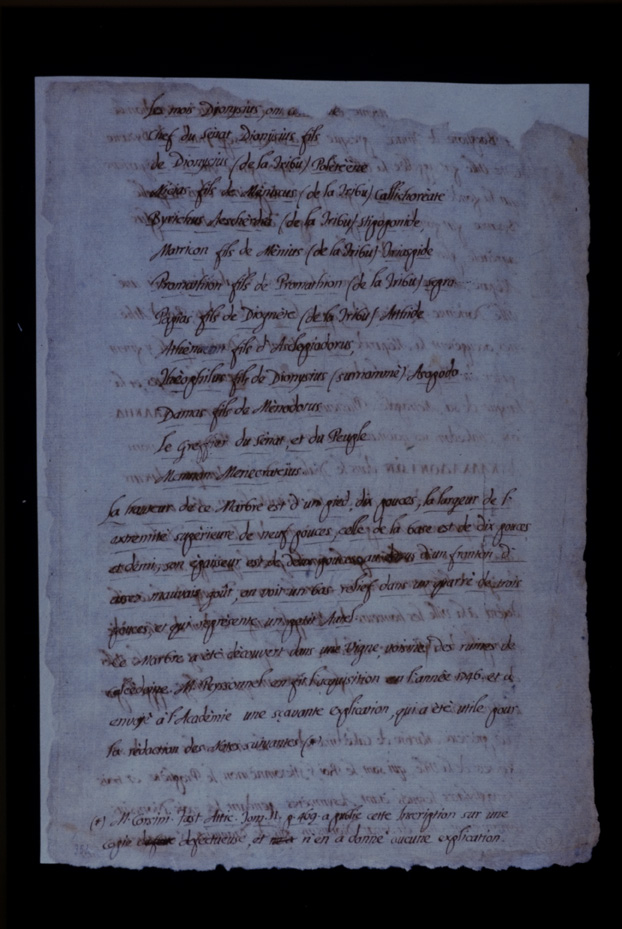 Les mois Dionysius, on
Chef du Sénat, Dionisius fils
de Dionysius (de la Tribu) Poletéène
Micias fils de Méniscus (de la Tribu) Callichoréate
Byrichus Aeschènes (de la Tribu)
Matricon fils de Ménius (de la Tribu)
Promathion fils de Promathion (de la Tribu)
fils de Diognète (de la Tribu)
Athéneon fils d'Asclepiadorus,
Théophilus fils de Dionysius (surnommé) Asopodo
Damas fils de Ménodorus
Le Greffier du Sénat, et du Peuple
Menecrateius.
La hauteur de ce Marbre est d'un pied, dix pouces, la largeur de l'
extremité supérieure de neuf pouces, celle de la base est de dix pouces
et demi, son épaisseur est de deux pouces; au d'un fronton d'
assez mauvais goût, on voit un bas relief dans un quarré de trois
pouces, et qui représente un petit Autel.
Ce Marbre a été découvert dans une Vigne, voisine des ruines de
calcédoine. M. Peyssonnel en fit l'acquisition en l'année 1746. et a
envoyé à l'Académie une sçavante explication, qui a été utile pour
la rédaction des Notes suivantes (*)
(*) M. Corsini. Fast. Attic. Tom. II. p. 469. a publié cette Inscription sur une
copie defectueuse, et n'en a donné aucune explication.